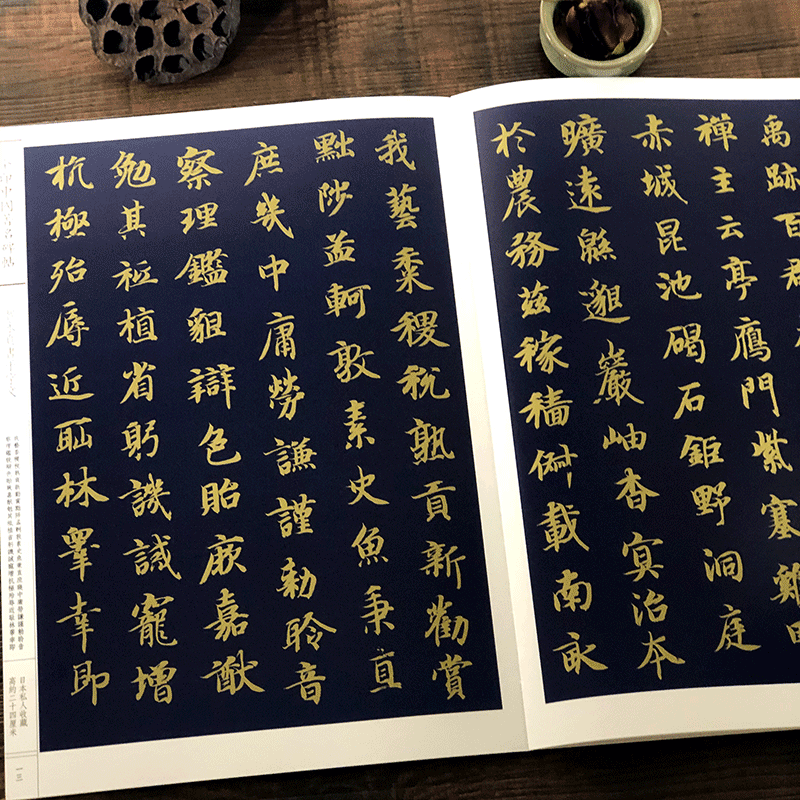 禹跡百郡
禪主云亭鴈門紫塞雞田
赤城昆池碣石鉅野洞庭
曠遠緜邈巖岫杳冥治本
於農務茲稼穡俶載南畝
我藝黍稷稅熟貢新勸賞
黜陟孟軻敦素史魚秉直
庶幾中庸勞謙謹勅聆音
察理鑑貌辯色貽厥嘉猷
勉其祗植省躬譏誡寵增
抗極殆辱近恥林睾幸即
日本私人收藏
高約二十四厘米
一三